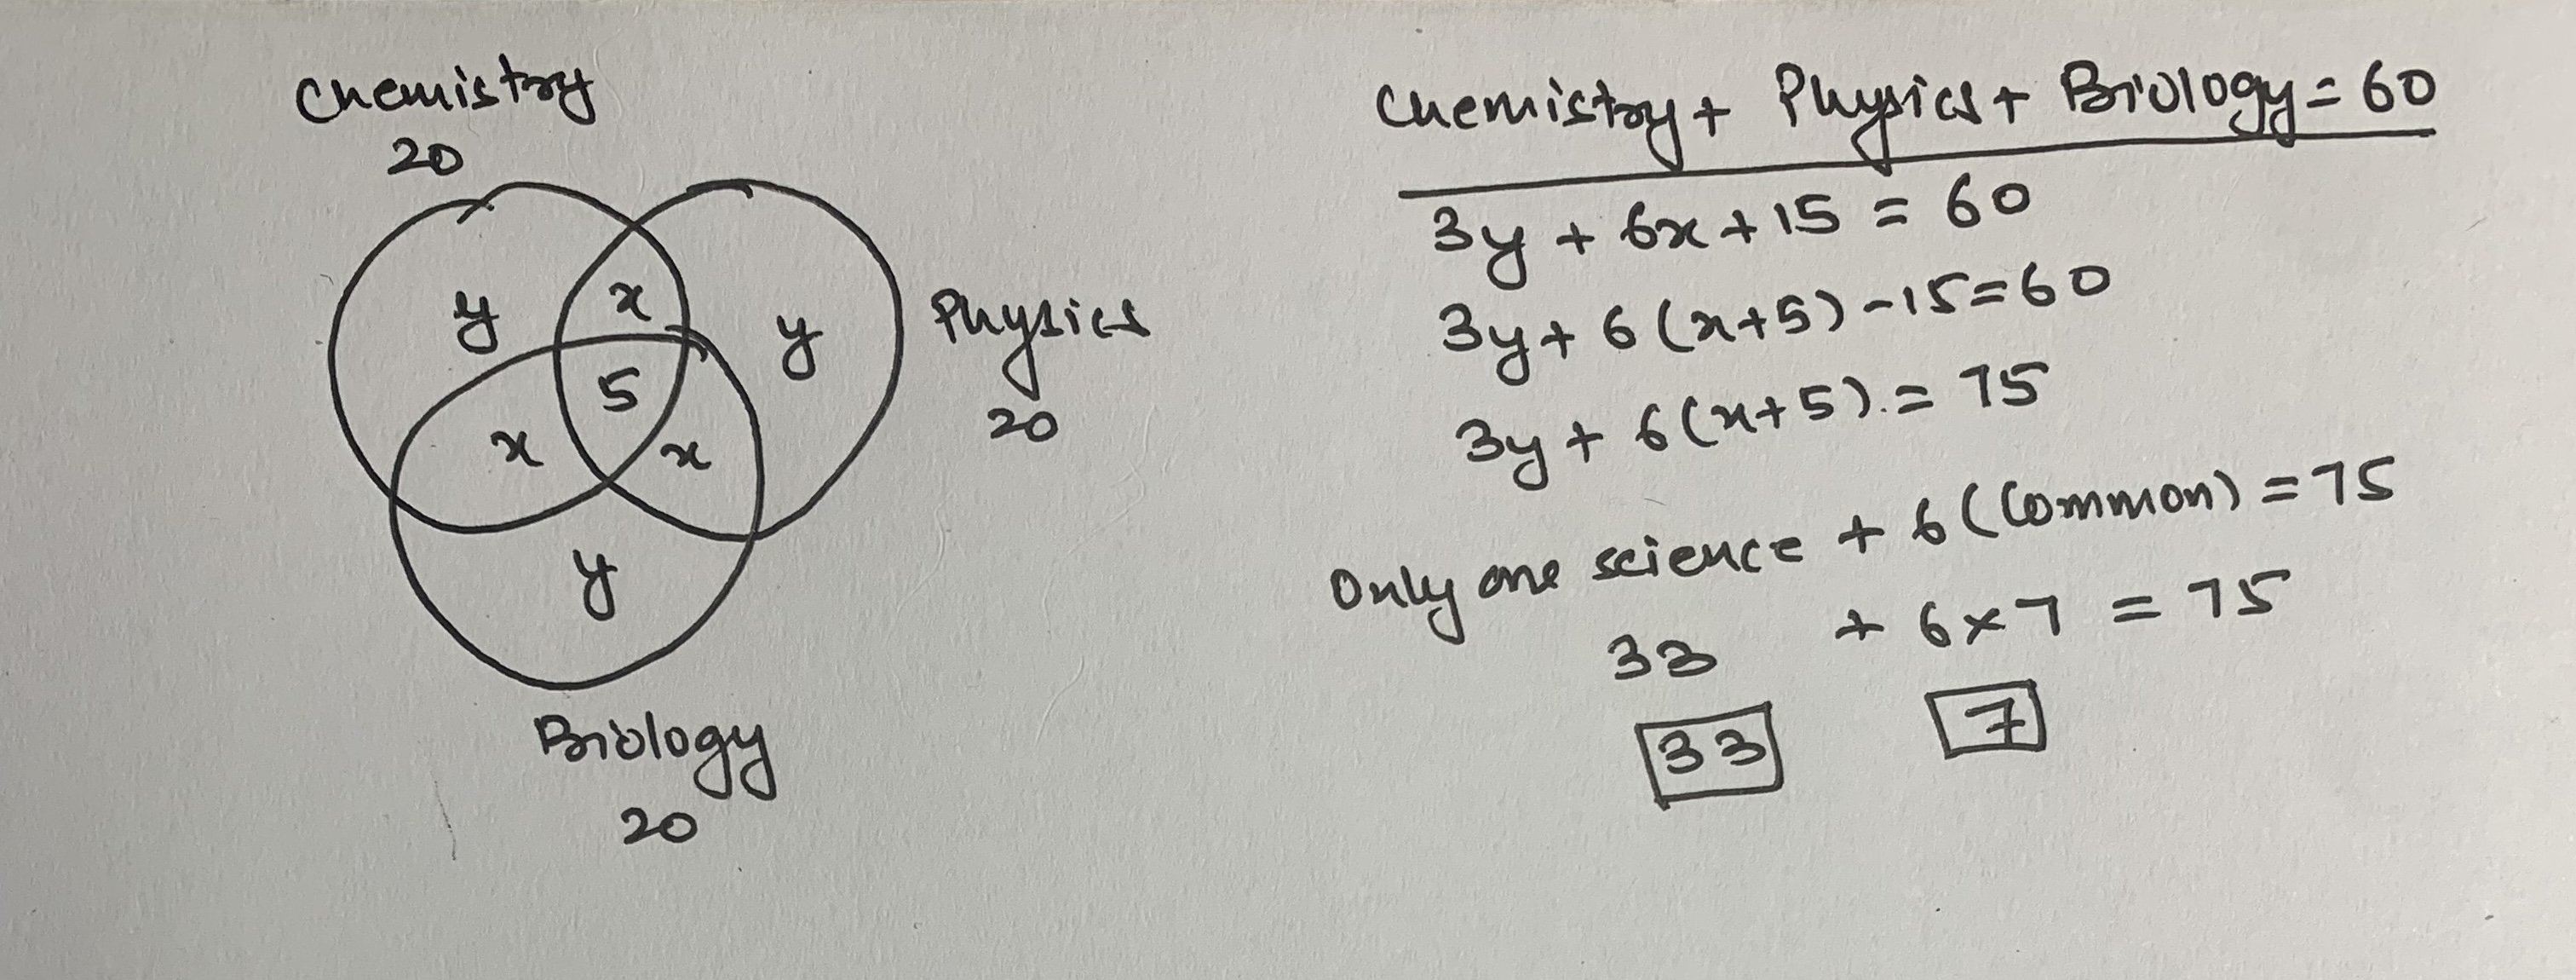 Chemistry
20
y
x
y
5
x
x
y
Physics
20
Biology
20
Chemistry + Physics + Biology = 60
3y + 6x + 15 = 60
3y + 6(x+5) - 15 = 60
3y + 6(x+5). = 75
Only one science + 6(Common) = 75
33 + 6 × 7 = 75
33 7